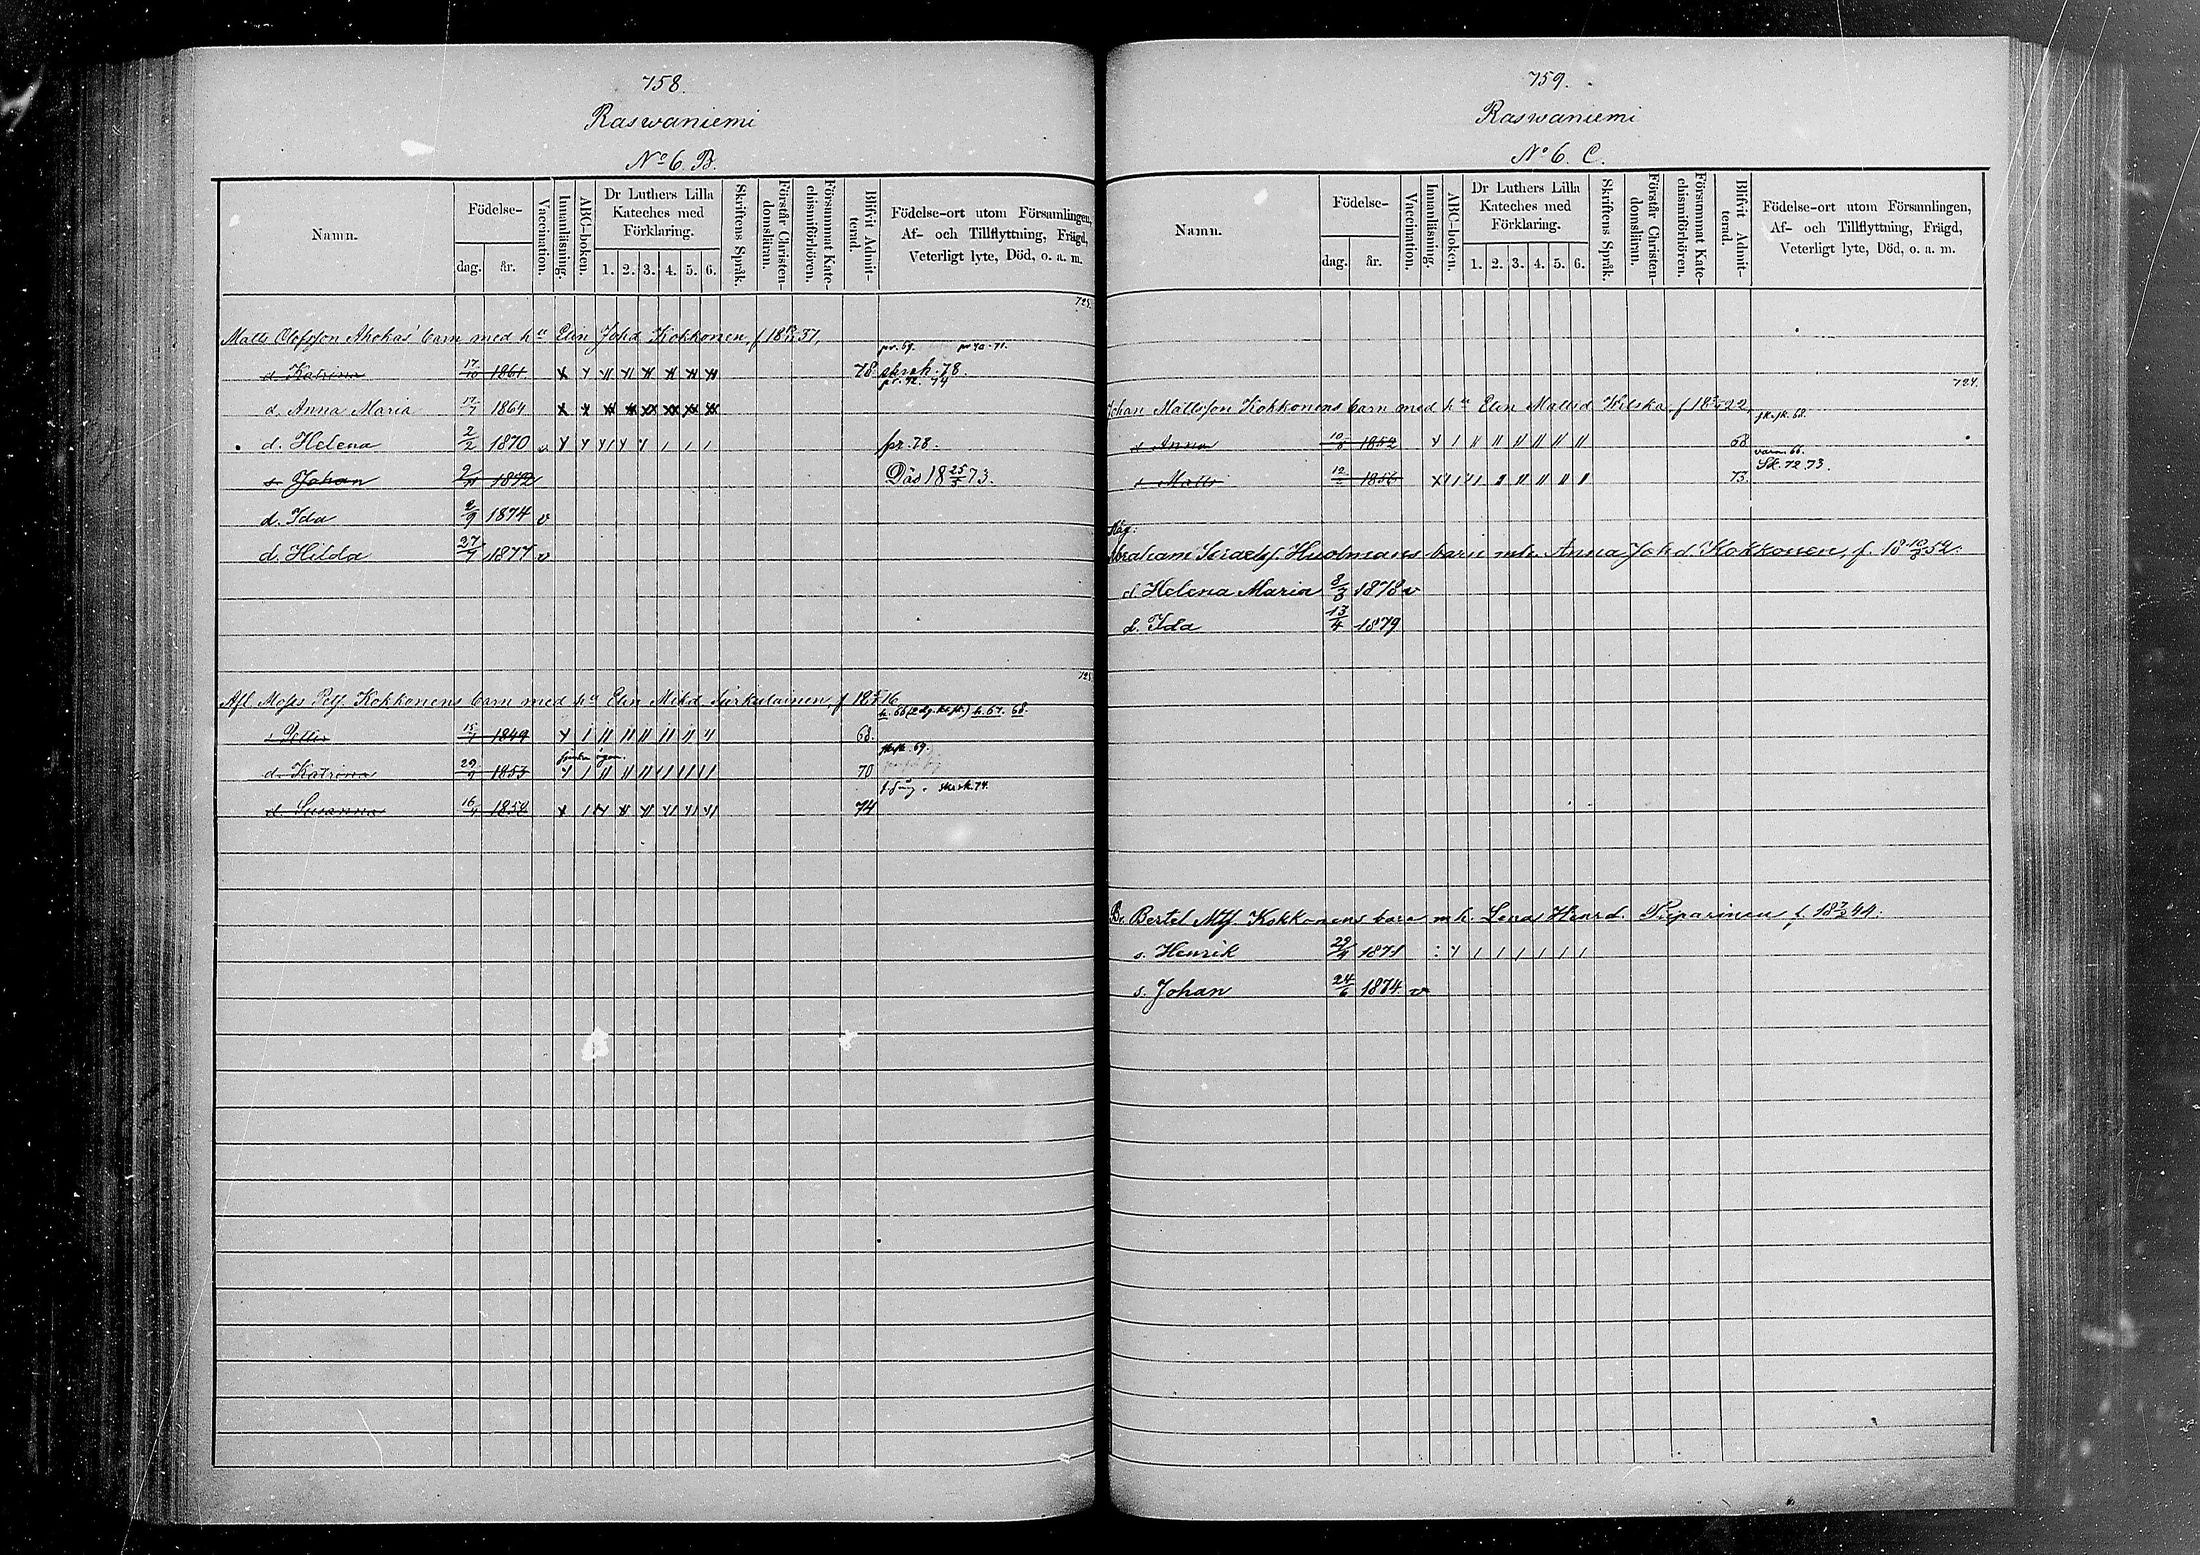 758.
Raswaniemi
No 6 B.
Namn.
Födelse-
dag. år.
Vaccination.
Innanläsning.
ABC-boken.
Dr Luthers Lilla
Kateches med
Förklaring.
1. 2. 3. 4. 5. 6.
Skriftens Språk.
Förstår Christen-
domsläran.
Försummat Kate-
chismiförhören.
Blifvit Admit-
terad.
Födelse-ort utom Församlingen,
Af- och Tillflyttning, Frägd,
Veterligt lyte, Död, o. a. m.
Matts Olofsson Ahokas' barn med hu Elin Johd Kokkonen, f 18 31,
pr. 69. pr 70-71.
d. Katrina 17/10 1861 78
78.
pr. 72. 74
d. Anna Maria 17/7 1864
d. Helena 2/2 1870 v pr. 78.
s. Johan 1872 Död 18 25/5 73.
d. Ida 2/9 1874 v
d. Hilda 27/7 1877 v
Afl. Moses Kokkonens barn med hu Elin Mikd f 18 16
h. 67. 68.
s. Petter 15/1 1849 68.
69.
d. Katrina 1853 70
74.
d. Susanna 74
759.
Raswaniemi
No 6. C.
Namn.
Födelse-
dag. år.
Vaccination.
Innanläsning.
ABC-boken.
Dr Luthers Lilla
Kateches med
Förklaring.
1. 2. 3. 4. 5. 6.
Skriftens Språk.
Förstår Christen-
domsläran.
Försummat Kate-
chismiförhören.
Blifvit Admit-
terad.
Födelse-ort utom Församlingen,
Af- och Tillflyttning, Frägd,
Veterligt lyte, Död, o. a. m.
724.
Johan Mattsson Kokkonens barn med hu Elin Mattsd Kilska f 18 22
68.
d. Anna 1852 68
66.
s. Matts 1856 73. Sk. 72 73.
Måg:
Abraham Israelsf. Huolmans barn mh. Anna Johd Kokkonen, f. 18 10/8 52.
d. Helena Maria 8/3 1878 v
d. Ida 13/4 1879
Br. Bertel Kokkonens barn mh. Lena Henrd. Piiparinen f. 18 44.
s. Henrik 29/9 1871
s. Johan 24/6 1874. v